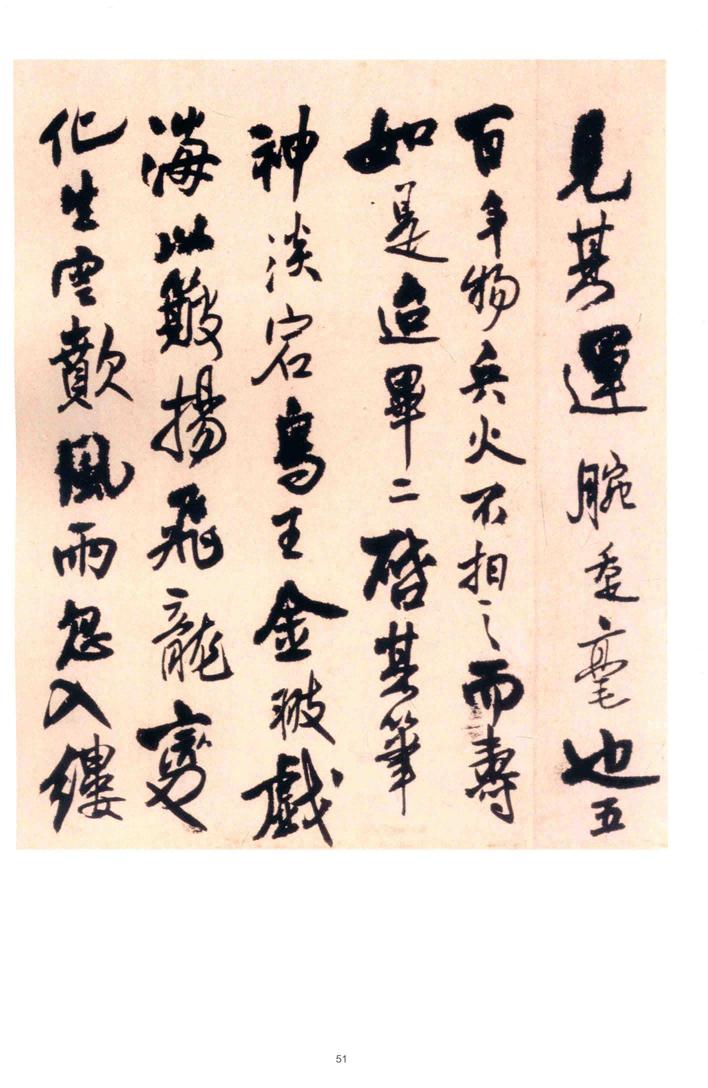 見其運腕垂毫也五
百年物兵火不相而壽
如是迨畢二啓其筆
神淡宕鳥王金翄戲
海以簸揚飛龍變
化生雲歕風雨忽入縷
51